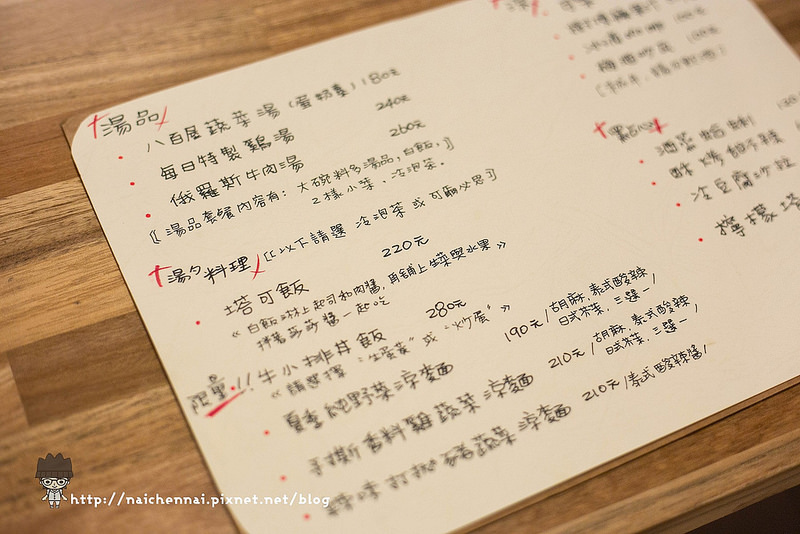 湯品
八百屋蔬菜湯(蛋奶素)180元
每日特製雞湯 240元
俄羅斯牛肉湯 260元
〖湯品套餐內容有:大碗料多湯品,白飯,
2樣小菜、冷泡茶。〗
湯勺料理 〖以下請選 冷泡茶 或 可爾必思〗
塔可飯 220元
《白飯淋上起司和肉醬,再鋪上生菜與水果
拌著莎莎醬一起吃》
限量!!牛小排丼飯 280元
《請選擇 "生蛋黃" 或 "炒蛋"》
夏季 野菜涼麵 190元/胡麻、泰式酸辣
日式茶菜,三選一/
手撕香料雞蔬菜涼麵 210元/胡麻、泰式酸辣
日式茶菜,三選一/
打拋豬蔬菜涼麵 210元/泰式酸辣醬/
點心
冷豆腐沙拉
檸檬塔
http://naichennai.pixnet.net/blog